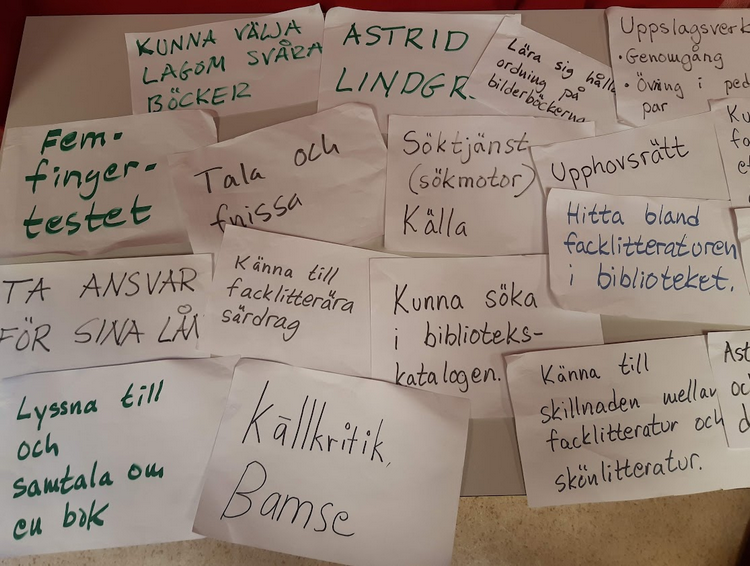 KUNNA VÄLJA
LAGOM SVÅRA
BÖCKER
ASTRID
LINDGR
Lära sig hålla
ordning på
bilderböckerna
Uppslagsverk
• Genomgång
• Övning i
par
Fem-
finger-
testet
Tala och
fnissa
Söktjänst
(sökmotor)
Källa
Upphovsrätt
Hitta bland
facklitteraturen
i biblioteket.
TA ANSVAR
FÖR SINA LÅN
Känna till
facklitterära
särdrag
Kunna söka
i biblioteks-
katalogen.
Känna till
skillnaden mellan
facklitteratur och
skönlitteratur.
Lyssna till
och
samtala om
en bok
Källkritik,
Bamse